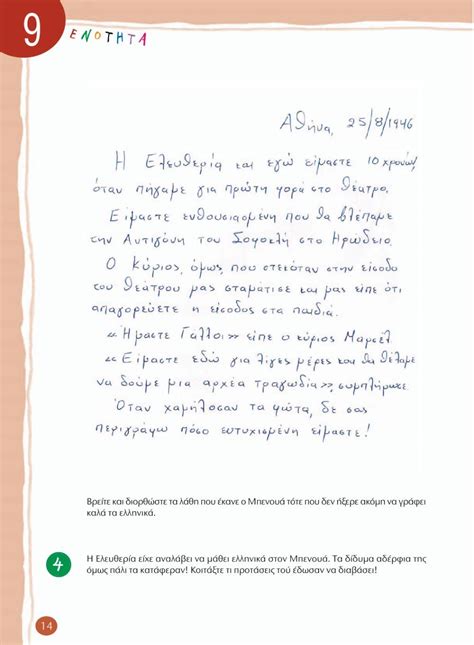 9
ΕΝΟΤΗΤΑ
Αθήνα, 25/8/1946
Η Ελευθερία και εγώ είμαστε 10 χρονών,
όταν πήγαμε για πρώτη γορά στο θέατρο.
Είμαστε ενθουσιασμένη που θα βλέπαμε
την Αντιγόνη του Σοφοκλή στο Ηρώδειο.
Ο Κύριος, όμως, που στεκόταν στην είσοδο
του θεάτρου μας σταμάτισε και μας είπε ότι
απαγορεύετε η είσοδος στα παιδιά.
«Ήμαστε Γάλλοι» είπε ο κύριος Μαρσέλ.
«Είμαστε εδώ για λίγες μέρες και θα θέλαμε
να δούμε μια αρχέα τραγωδία», συμπλήρωσε.
Όταν χαμήλοσαν τα φώτα, δε σας
περιγράφω πόσο ευτυχισμένη είμαστε!
Βρείτε και διορθώστε τα λάθη που έκανε ο Μπενουά τότε που δεν ήξερε ακόμη να γράφει
καλά τα ελληνικά.
4
Η Ελευθερία είχε αναλάβει να μάθει ελληνικά στον Μπενουά. Τα δίδυμα αδέρφια της
όμως πάλι τα κατάφεραν! Κοιτάξτε τι προτάσεις τού έδωσαν να διαβάσει!
14